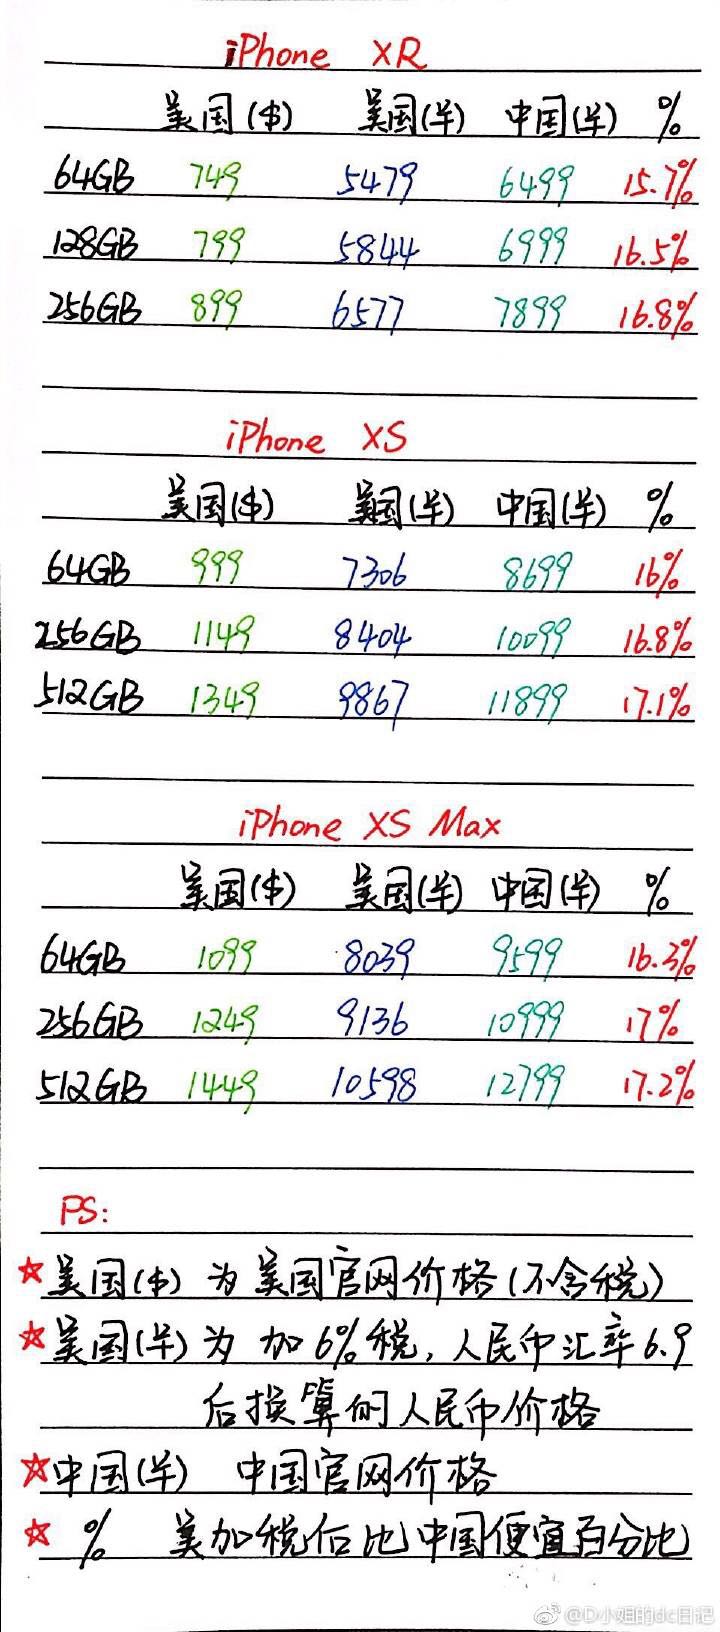 iPhone XR
美国($) 美国(¥) 中国(¥) %
64GB 749 5479 6499 15.7%
128GB 799 5844 6999 16.5%
256GB 899 6577 7899 16.8%
iPhone XS
美国($) 美国(¥) 中国(¥) %
64GB 999 7306 8699 16%
256GB 1149 8404 10099 16.8%
512GB 1349 9867 11899 17.1%
iPhone XS Max
美国($) 美国(¥) 中国(¥) %
64GB 1099 8039 9599 16.3%
256GB 1249 9136 10999 17%
512GB 1449 10598 12799 17.2%
PS:
☆美国($) 为 美国官网价格(不含税)
☆美国(¥)为 加6%税, 人民币汇率6.9
后换算的人民币价格
☆中国(¥) 中国官网价格
☆ % 美加税后比中国便宜百分比
@D小姐的dc日记